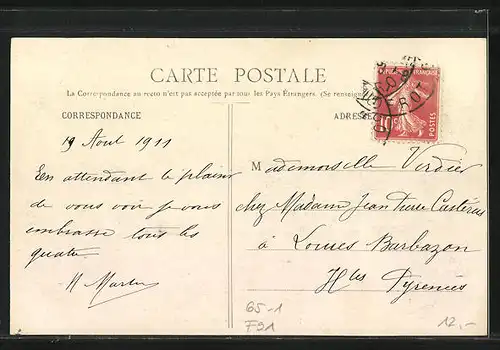 CARTE POSTALE
La Correspondance au recto n'est pas acceptée par tous les Pays Étrangers. (Se renseign
CORRESPONDANCE
ADRESSE
10
POSTES
19 Aout 1911
En attendant le plaisir
de vous voir je vous
embrasse tous les
quatre
M Martin
Mademoiselle Verdier
chez Madame Jean Pierre Castérus
à Loures Barbazan
Htes Pyrénées
65-1
F91
12,-